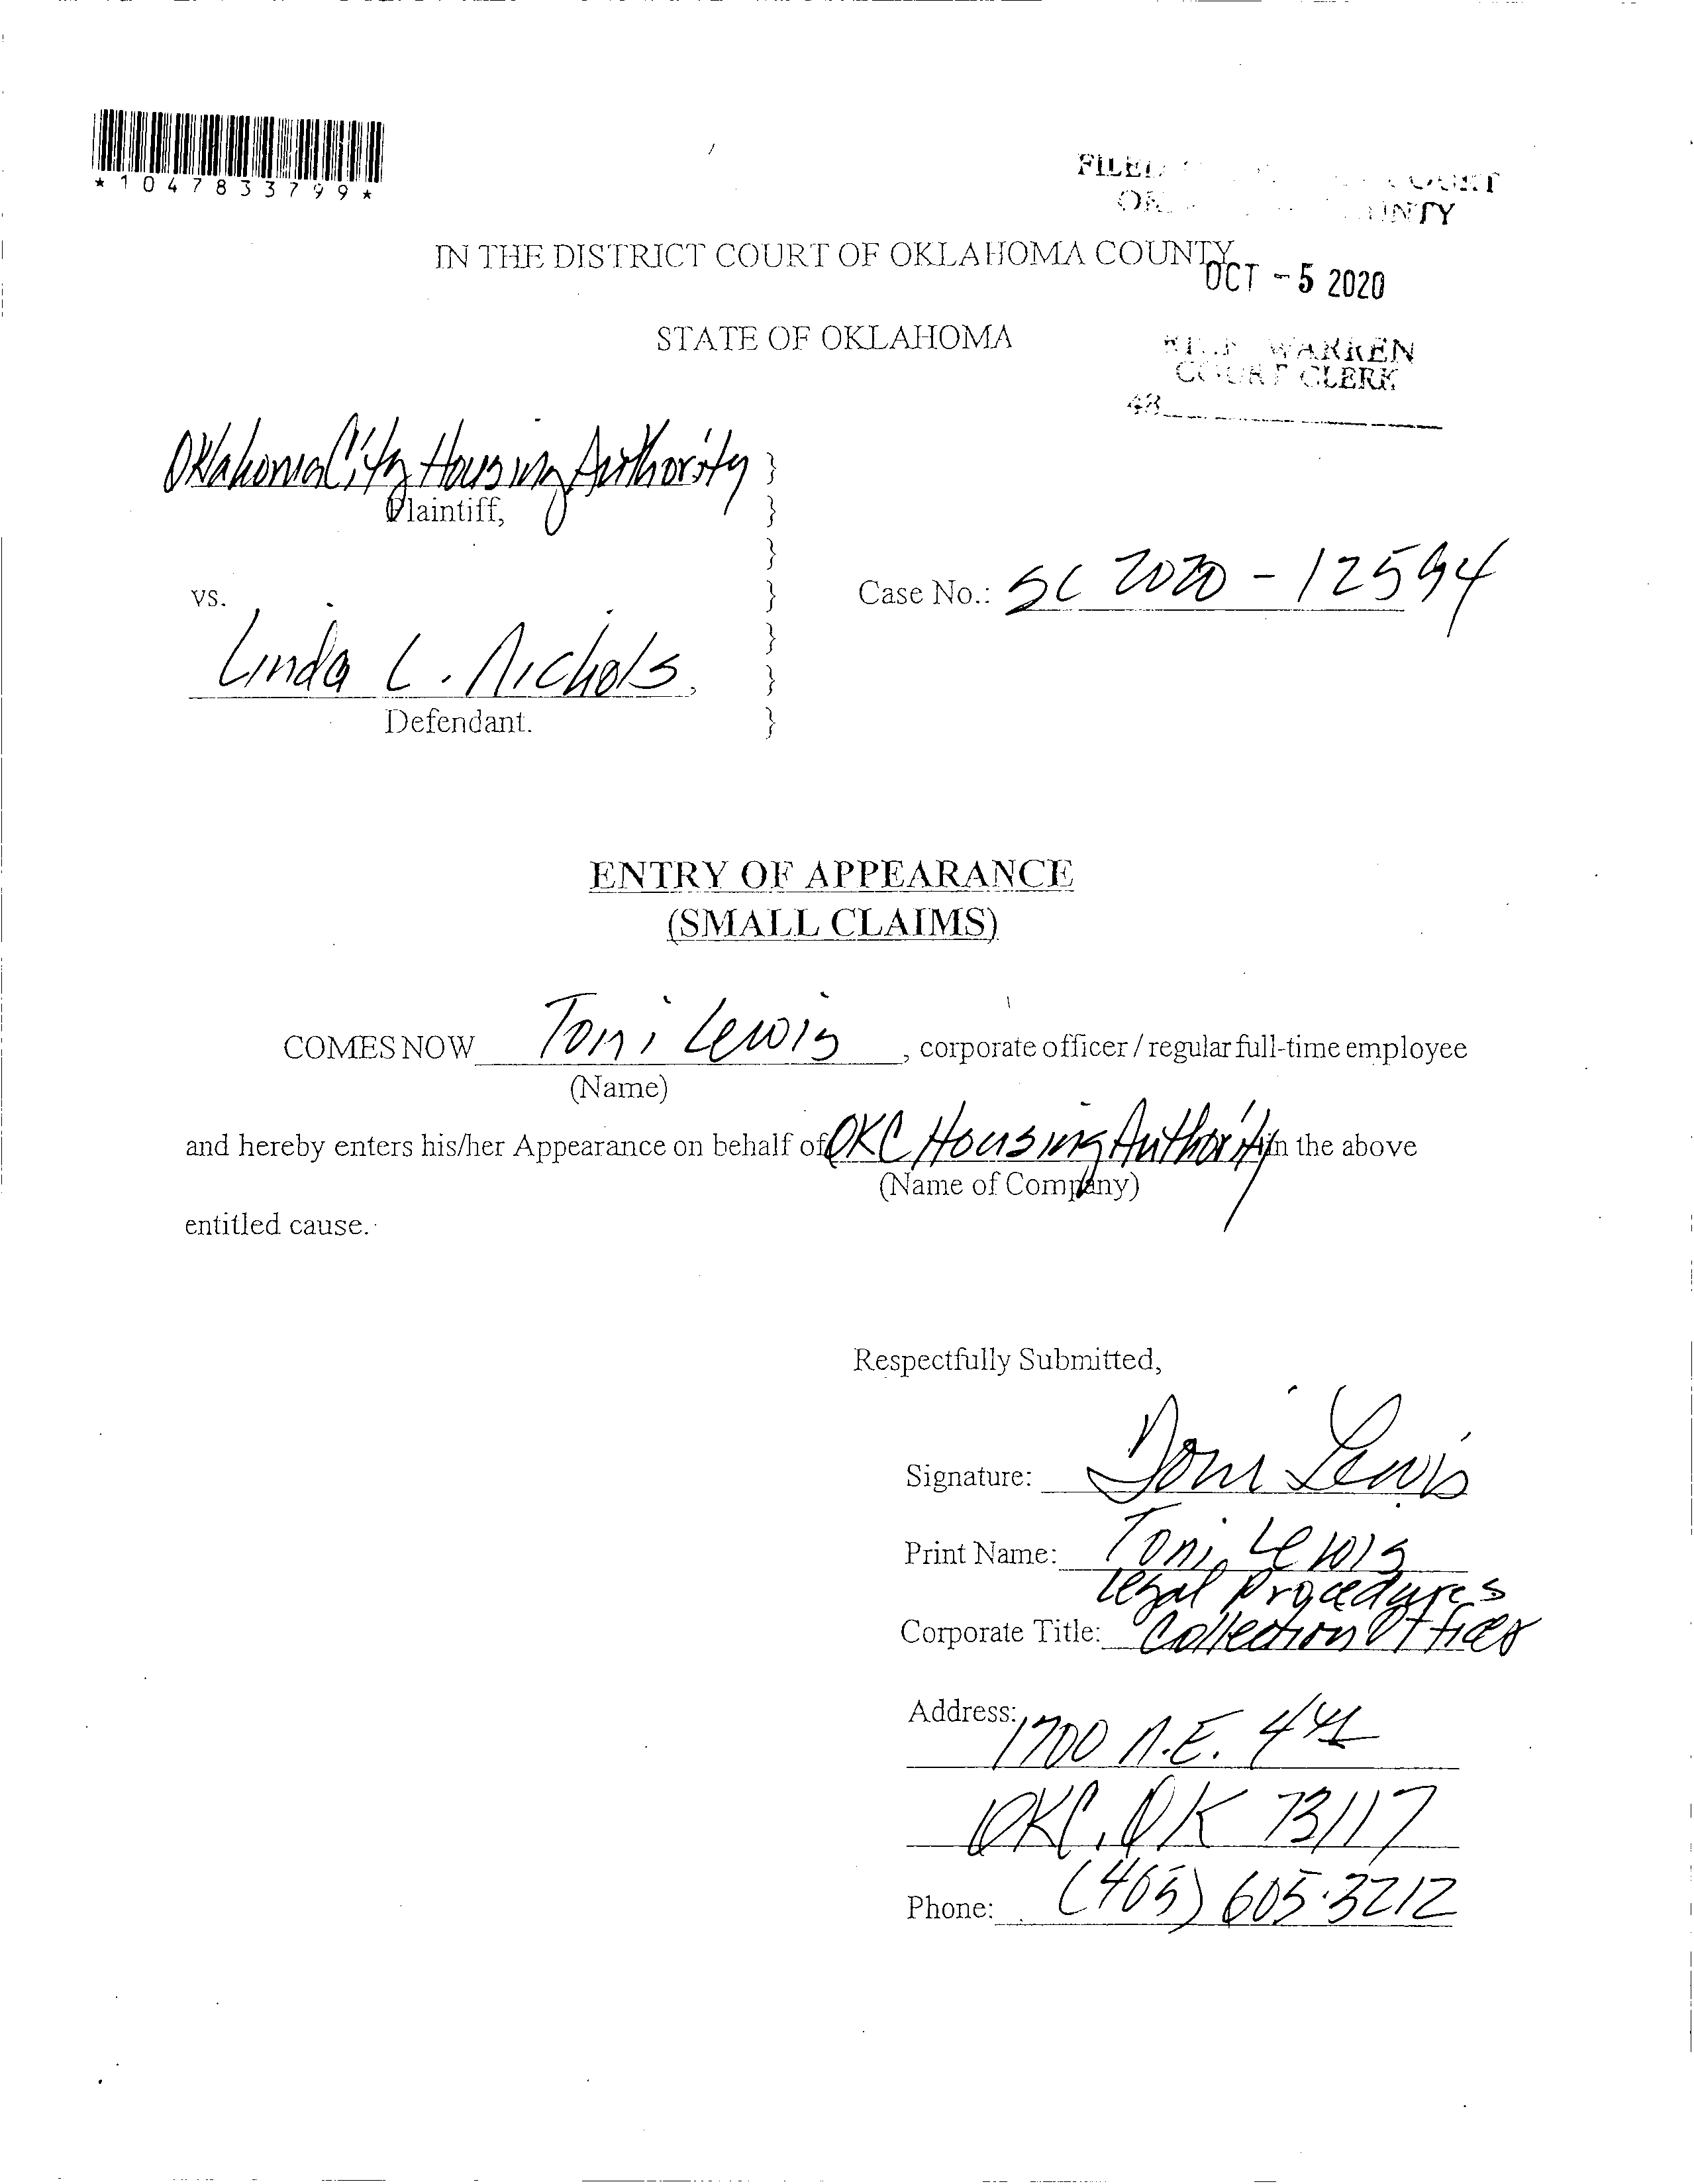 *1047833799*
FILED COURT
COUNTY
IN THE DISTRICT COURT OF OKLAHOMA COUNTY
OCT -5 2020
STATE OF OKLAHOMA
WARREN
COURT CLERK
48
Oklahoma City Housing Authority }
Plaintiff, }
}
vs. } Case No.: SC 2020 - 12594
}
Linda L. Nichols, }
Defendant. }
ENTRY OF APPEARANCE
(SMALL CLAIMS)
COMES NOW Toni Lewis, corporate officer / regular full-time employee
(Name)
and hereby enters his/her Appearance on behalf of OKC Housing Authority in the above
(Name of Company)
entitled cause.
Respectfully Submitted,
Signature: Toni Lewis
Print Name: Toni Lewis
Legal Procedures
Corporate Title: Collection Officer
Address:
1700 N.E. 4th
OKC, OK 73117
Phone: (405) 605-3212